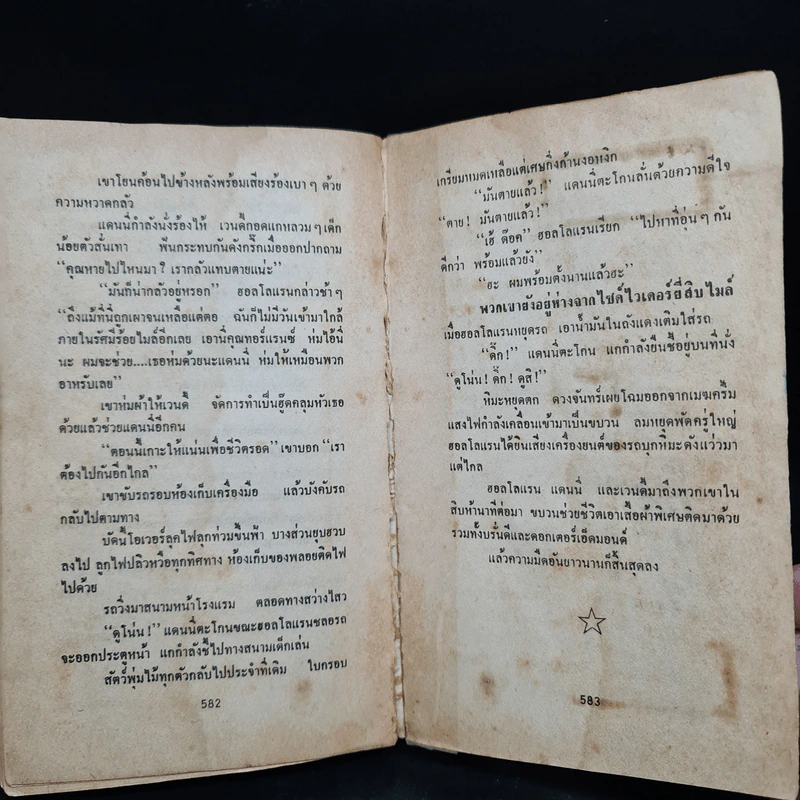 เขาโยนค้อนไปข้างหลังพร้อมเสียงร้องเบาๆ ด้วย
ความหวาดกลัว
แดนนี่กำลังนั่งร้องไห้ เวนดี้กอดแกหลวมๆ เด็ก
น้อยตัวสั่นเทา ฟันกระทบกันดังกริ๊กเมื่อออกปากถาม
“คุณหายไปไหนมา? เรากลัวแทบตายแน่ะ”
“มันก็น่ากลัวอยู่หรอก” ฮอลโลแรนกล่าวช้าๆ
“ถึงแม้ที่นี่ถูกเผาจนเหลือแต่ตอ ฉันก็ไม่มีวันเข้ามาใกล้
ภายในรัศมีร้อยไมล์อีกเลย เอานี่คุณทอร์แรนซ์ ห่มไอ้นี่
นะ ผมจะช่วย....เธอห่มด้วยนะแดนนี่ ห่มให้เหมือนพวก
อาหรับเลย”
เขาห่มผ้าให้เวนดี้ จัดการทำเป็นฮู๊ดคลุมหัวเธอ
ด้วยแล้วช่วยแดนนี่อีกคน
“ตอนนี้เกาะให้แน่นเพื่อชีวิตรอด” เขาบอก “เรา
ต้องไปกันอีกไกล”
เขาขับรถรอบห้องเก็บเครื่องมือ แล้วบังคับรถ
กลับไปตามทาง
บัดนี้โอเวอร์ลุคไฟลุกท่วมขึ้นฟ้า บางส่วนยุบฮวบ
ลงไป ลูกไฟปลิวหวือทุกทิศทาง ห้องเก็บของพลอยติดไฟ
ไปด้วย
รถวิ่งมาสนามหน้าโรงแรม ตลอดทางสว่างไสว
“ดูโน่น!” แดนนี่ตะโกนขณะฮอลโลแรนชลอรถ
จะออกประตูหน้า แกกำลังชี้ไปทางสนามเด็กเล่น
สัตว์พุ่มไม้ทุกตัวกลับไปประจำที่เดิม ใบกรอบ
582
เกรียมหมดเหลือแต่เศษกิ่งก้านงอหงิก
“มันตายแล้ว!” แดนนี่ตะโกนลั่นด้วยความดีใจ
“ตาย! มันตายแล้ว!”
“เฮ้ ด๊อค” ฮอลโลแรนเรียก “ไปหาที่อุ่นๆ กัน
ดีกว่า พร้อมแล้วยัง”
“ฮะ ผมพร้อมตั้งนานแล้วฮะ”
พวกเขายังอยู่ห่างจากไซด์ไวเดอร์ยี่สิบไมล์
เมื่อฮอลโลแรนหยุดรถ เอาน้ำมันในถังแดงเติมใส่รถ
“ดิ๊ก!” แดนนี่ตะโกน แกกำลังยืนชี้อยู่บนที่นั่ง
“ดูโน่น! ดิ๊ก! ดูสิ!”
หิมะหยุดตก ดวงจันทร์เผยโฉมออกจากเมฆครึ้ม
แสงไฟกำลังเคลื่อนเข้ามาเป็นขบวน ลมหยุดพัดครู่ใหญ่
ฮอลโลแรนได้ยินเสียงเครื่องยนต์ของรถบุกหิมะดังแว่วมา
แต่ไกล
ฮอลโลแรน แดนนี่ และเวนดี้มาถึงพวกเขาใน
สิบห้านาทีต่อมา ขบวนช่วยชีวิตเอาเสื้อผ้าพิเศษติดมาด้วย
รวมทั้งบรั่นดีและดอกเตอร์เอ็ดมอนด์
แล้วความมืดอันยาวนานก็สิ้นสุดลง
583